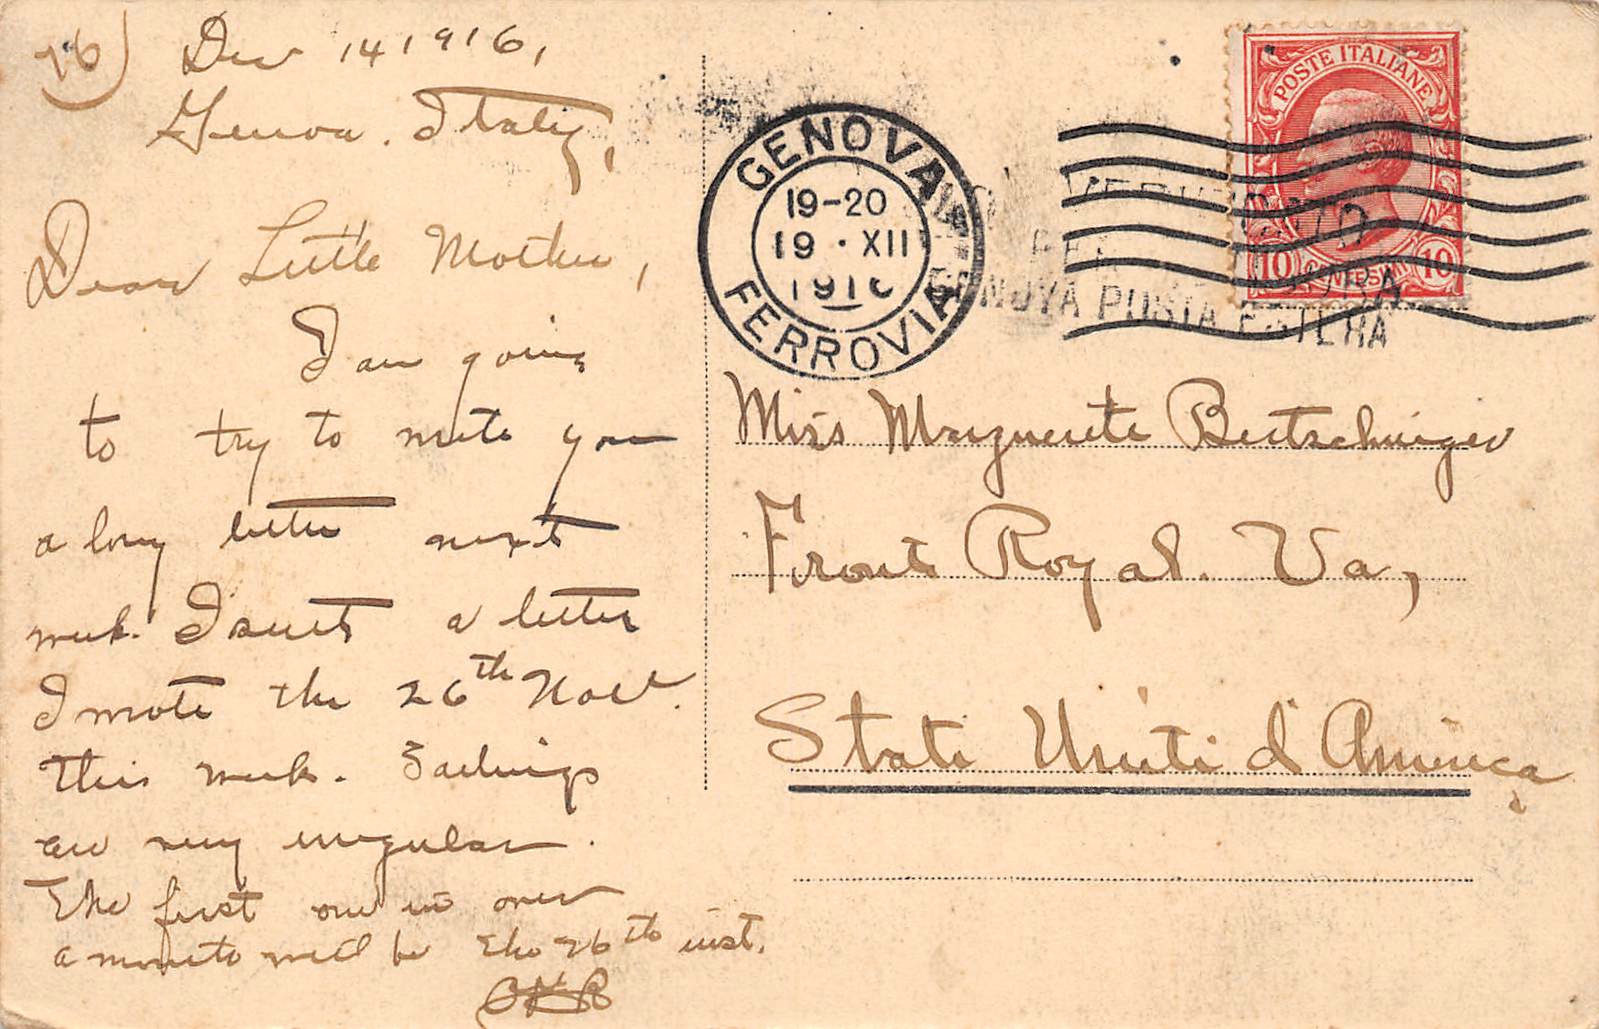 26)
Dec 14 1916,
Genoa. Italy,
Dear Little Mother,
I am going
to try to write you
a long letter next
week. I sent a letter
I wrote the 26th Nov.
this week. Sailings
are very irregular.
The first one in over
a month will be the 26th inst.
GENOVA
19-20
19 · XII
191
FERROVIA
VERIFICATO
PER CENSURA
GENOVA POSTA ESTERA
POSTE ITALIANE
10 CENTESIMI 10
Miss Marguerite Bertschinger
Front Royal. Va,
State Uniti d'America